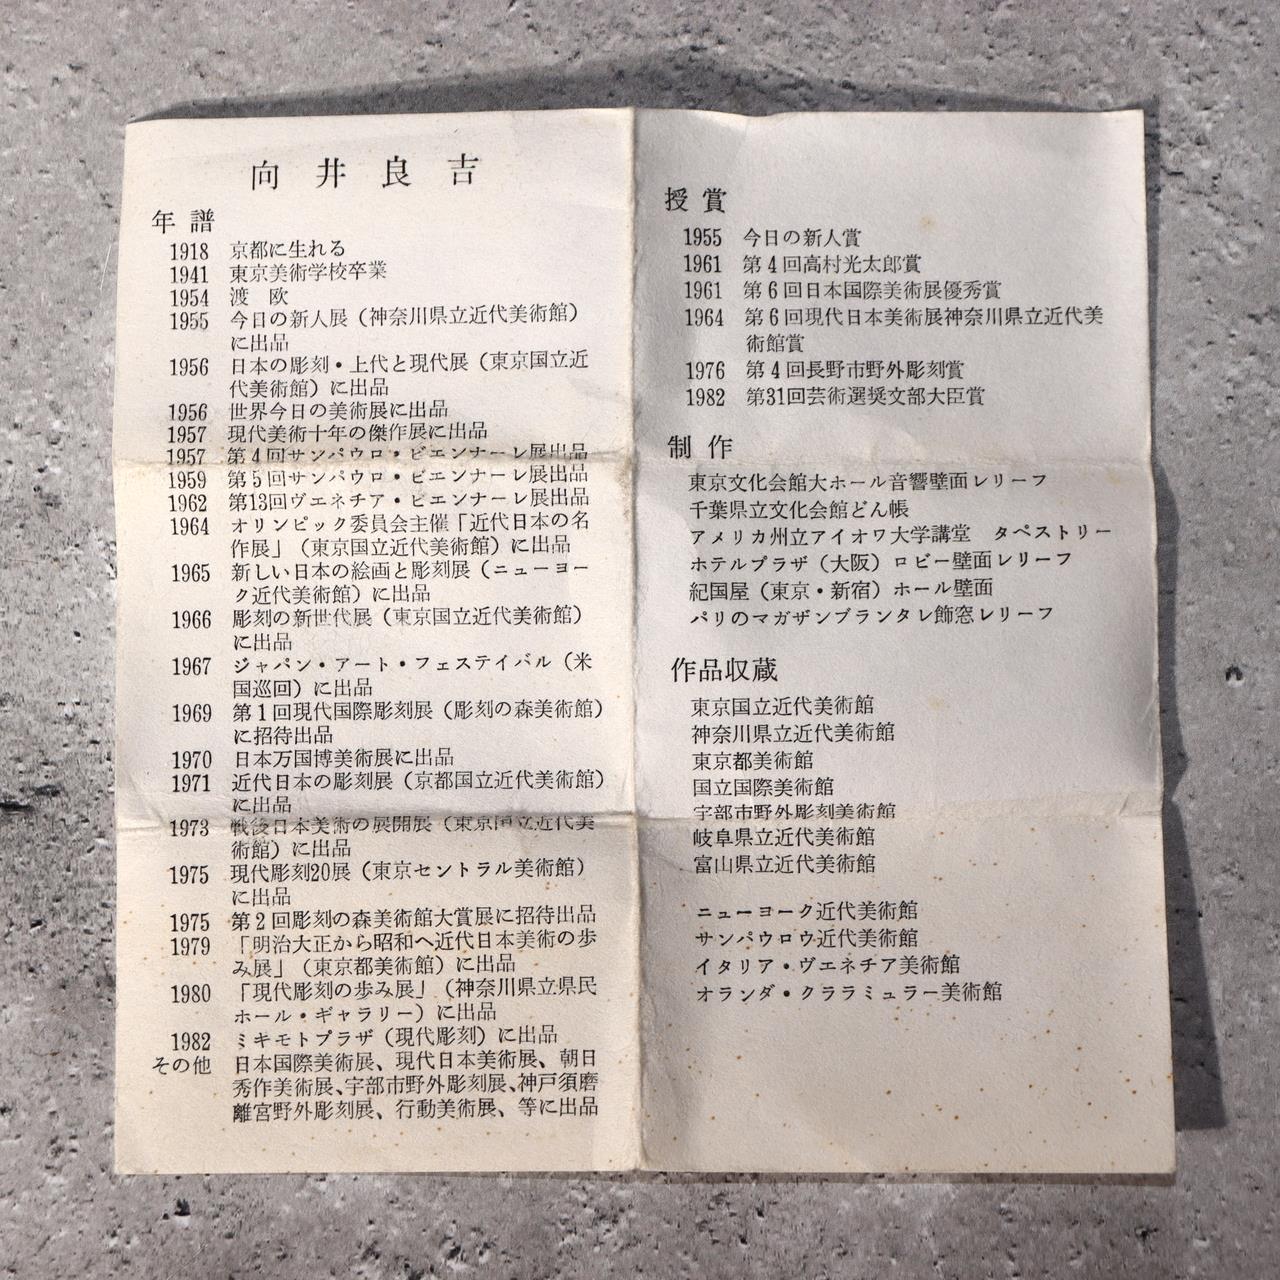 向井良吉
年譜
1918 京都に生れる
1941 東京美術学校卒業
1954 渡　欧
1955 今日の新人展（神奈川県立近代美術館）
に出品
1956 日本の彫刻・上代と現代展（東京国立近
代美術館）に出品
1956 世界今日の美術展に出品
1957 現代美術十年の傑作展に出品
1957 第4回サンパウロ・ビエンナーレ展出品
1959 第5回サンパウロ・ビエンナーレ展出品
1962 第13回ヴエネチア・ビエンナーレ展出品
1964 オリンピック委員会主催「近代日本の名
作展」（東京国立近代美術館）に出品
1965 新しい日本の絵画と彫刻展（ニューヨー
ク近代美術館）に出品
1966 彫刻の新世代展（東京国立近代美術館）
に出品
1967 ジャパン・アート・フェステイバル（米
国巡回）に出品
1969 第1回現代国際彫刻展（彫刻の森美術館）
に招待出品
1970 日本万国博美術展に出品
1971 近代日本の彫刻展（京都国立近代美術館）
に出品
1973 戦後日本美術の展開展（東京国立近代美
術館）に出品
1975 現代彫刻20展（東京セントラル美術館）
に出品
1975 第2回彫刻の森美術館大賞展に招待出品
1979 「明治大正から昭和へ近代日本美術の歩
み展」（東京都美術館）に出品
1980 「現代彫刻の歩み展」（神奈川県立県民
ホール・ギャラリー）に出品
1982 ミキモトプラザ（現代彫刻）に出品
その他 日本国際美術展、現代日本美術展、朝日
秀作美術展、宇部市野外彫刻展、神戸須磨
離宮野外彫刻展、行動美術展、等に出品
授賞
1955 今日の新人賞
1961 第4回高村光太郎賞
1961 第6回日本国際美術展優秀賞
1964 第6回現代日本美術展神奈川県立近代美
術館賞
1976 第4回長野市野外彫刻賞
1982 第31回芸術選奨文部大臣賞
制作
東京文化会館大ホール音響壁面レリーフ
千葉県立文化会館どん帳
アメリカ州立アイオワ大学講堂　タペストリー
ホテルプラザ（大阪）ロビー壁面レリーフ
紀国屋（東京・新宿）ホール壁面
パリのマガザンブランタレ飾窓レリーフ
作品収蔵
東京国立近代美術館
神奈川県立近代美術館
東京都美術館
国立国際美術館
宇部市野外彫刻美術館
岐阜県立近代美術館
富山県立近代美術館
ニューヨーク近代美術館
サンパウロウ近代美術館
イタリア・ヴエネチア美術館
オランダ・クララミュラー美術館